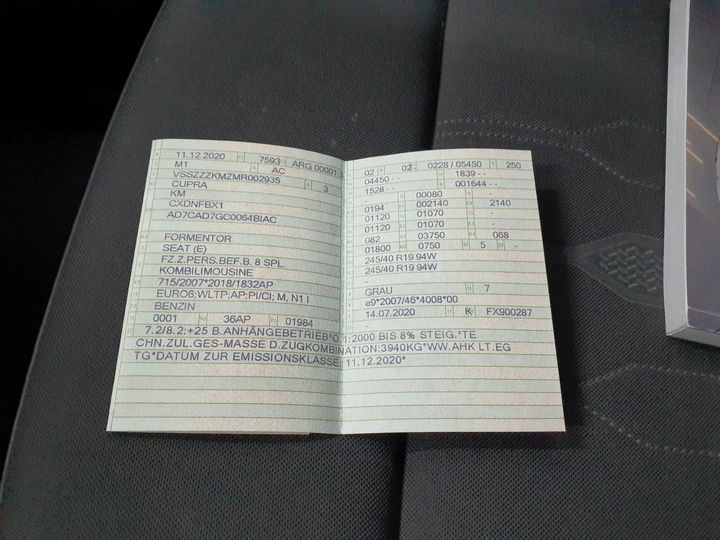 11.12.2020 7593 ARG 00001 3
M1 AC
VSSZZZKMZMR002935 3
CUPRA
KM
CXDNFBX1
AD7CAD7GC0064BIAC
FORMENTOR
SEAT (E)
FZ.Z.PERS.BEF.B. 8 SPL.
KOMBILIMOUSINE
715/2007*2018/1832AP
EURO6;WLTP;AP;PI/CI; M, N1 I
BENZIN
0001 36AP 01984
02 02 0228 / 05450 250
04450 - - 1839 - -
1528 - - 001644 - -
- 00080 - -
0194 002140 2140
01120 01070 -
01120 01070 -
082 03750 068
01800 0750 5 -
245/40 R19 94W
245/40 R19 94W
GRAU 7
e9*2007/46*4008*00
14.07.2020 K FX900287
7.2/8.2:+25 B.ANHÄNGEBETRIEB*O.1:2000 BIS 8% STEIG.*TE
CHN.ZUL.GES-MASSE D.ZUGKOMBINATION:3940KG*WW.AHK LT.EG
TG*DATUM ZUR EMISSIONSKLASSE: 11.12.2020*